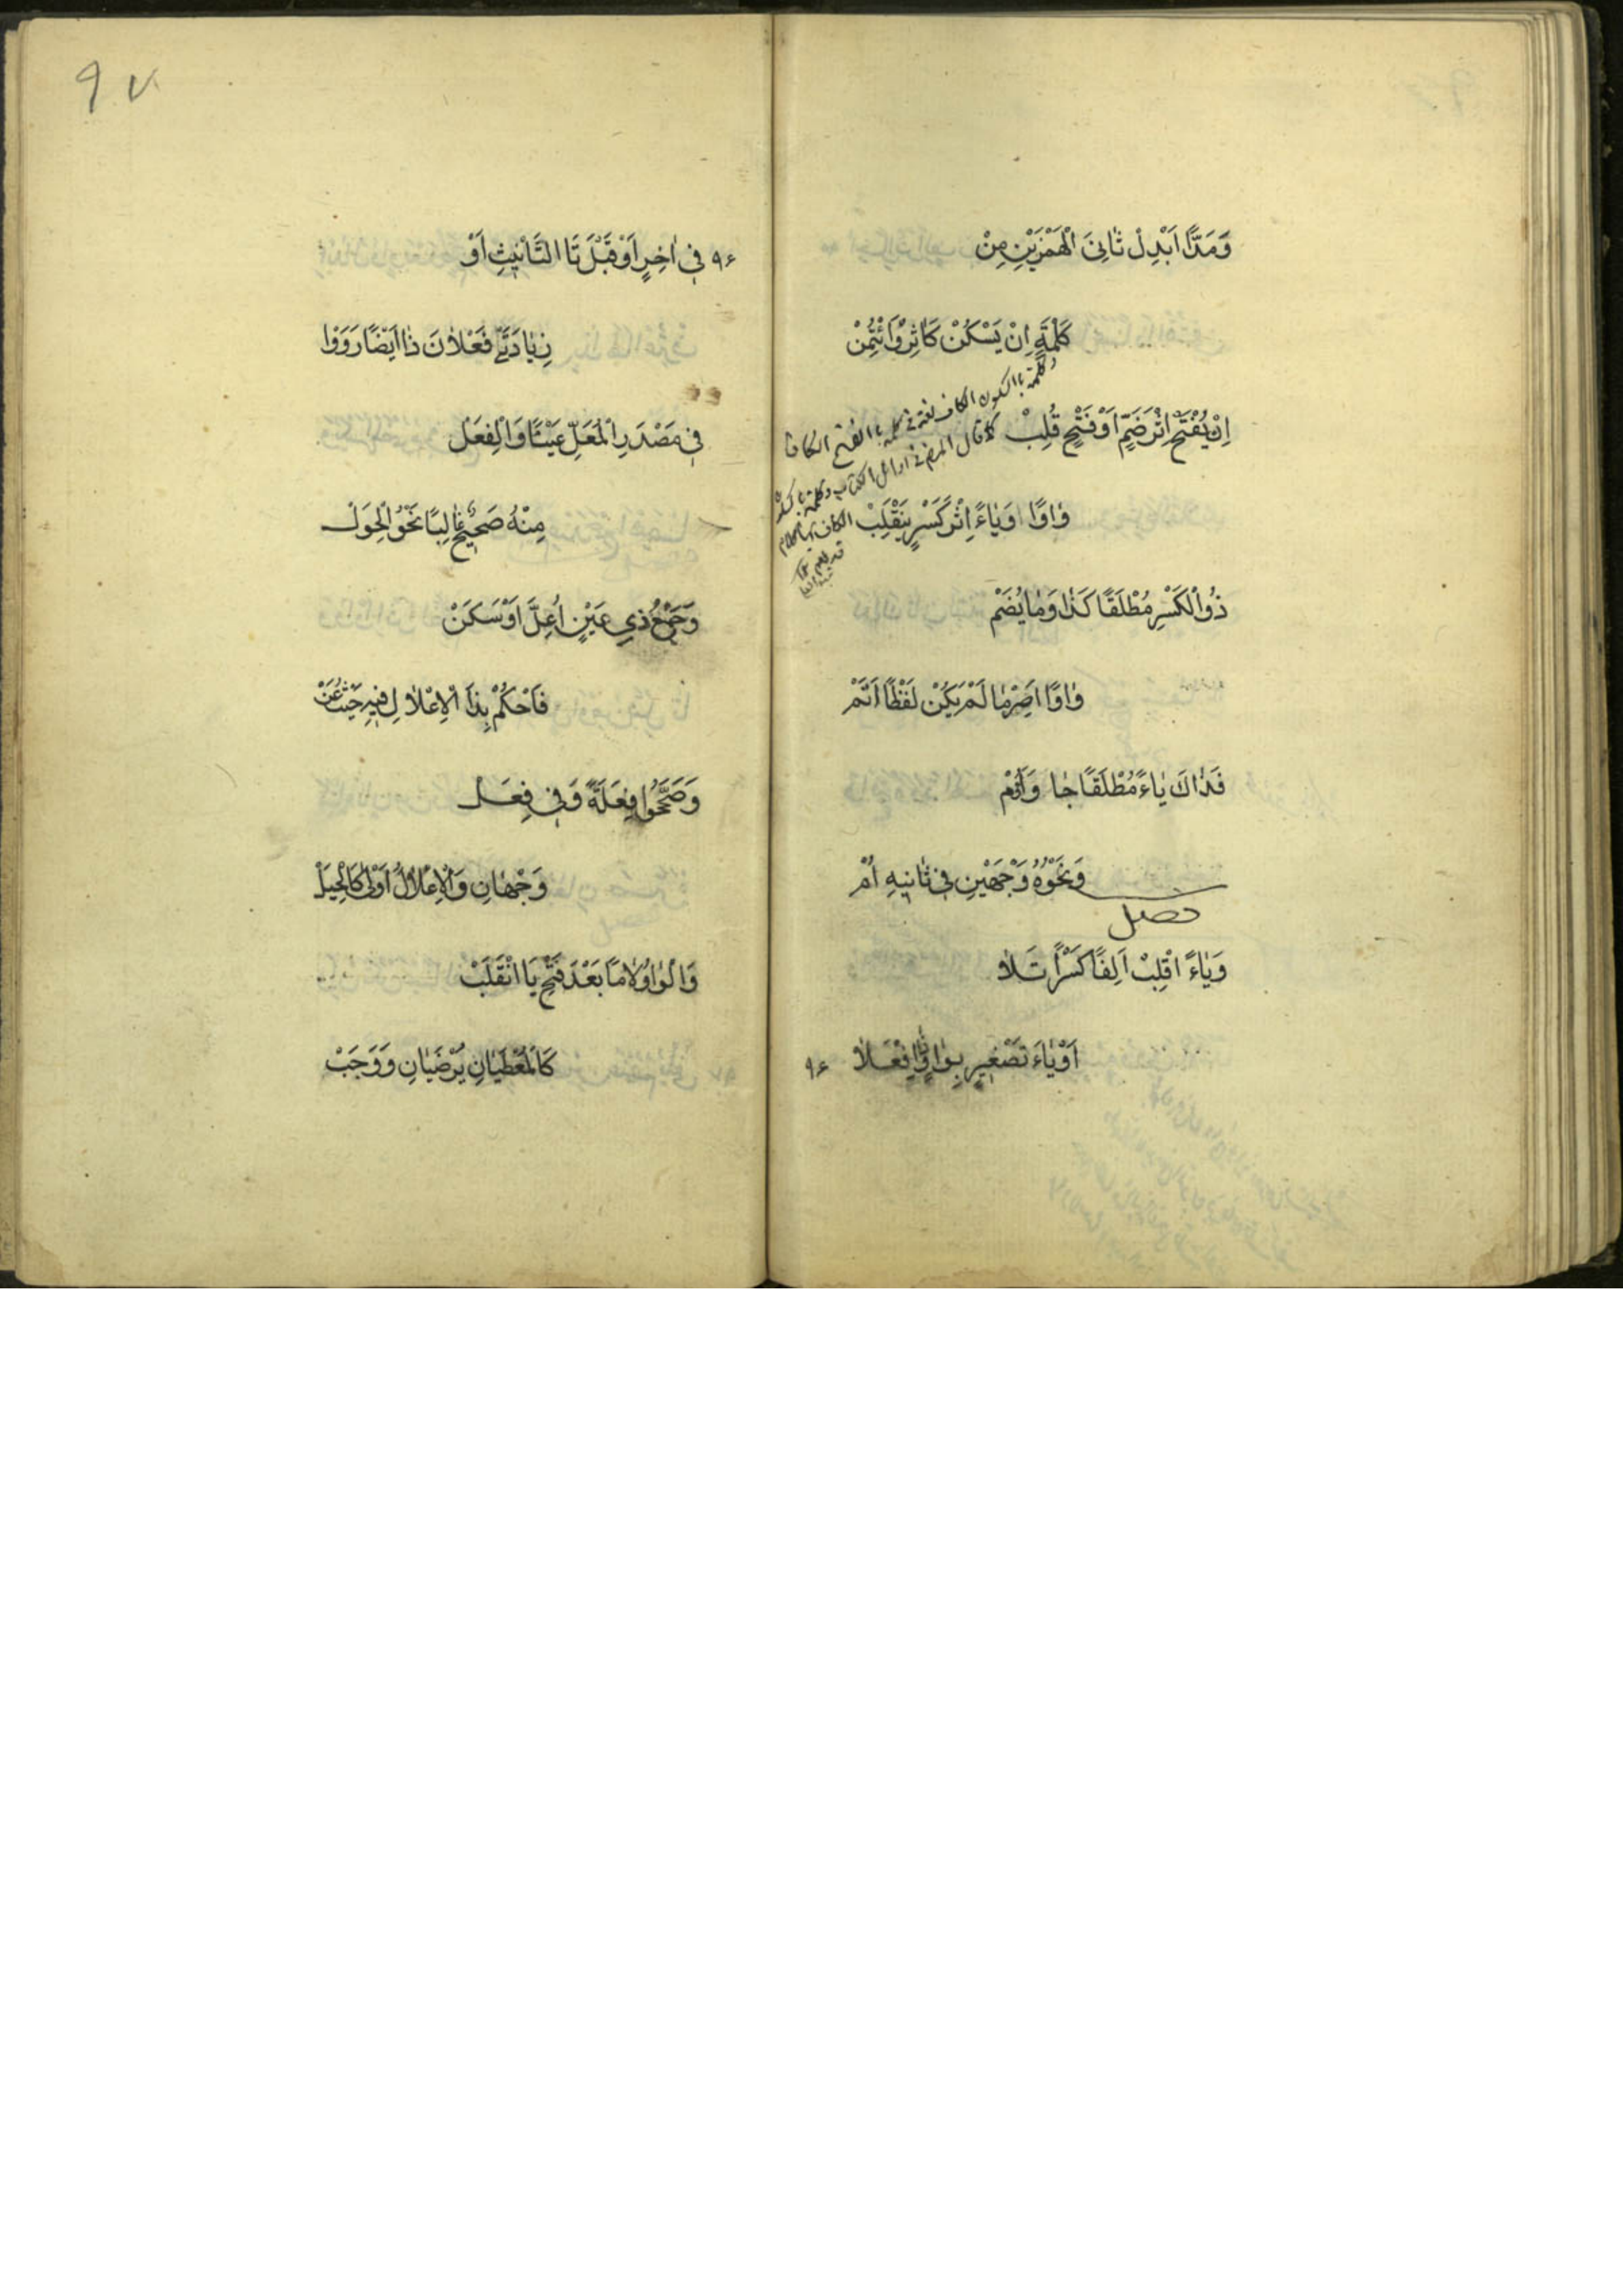 وَمَدًّا اَبْدِلْ ثٰانِیَ الْهَمْزَیْنِ مِنْ
كِلْمَةٍ اِنْ يَسْكُنْ كَاٰثِرْ وَائْتُمِنْ
اِنْ يُفْتَحْ اِثْرَ ضَمٍّ اَوْ فَتْحٍ قُلِبْ
وٰاوًا وَيٰاءً اِثْرَ كَسْرٍ يَنْقَلِبْ
ذُو الْكَسْرِ مُطْلَقًا كَذٰا وَمٰا يُضَمْ
وٰاوًا اَصِرْ مٰا لَمْ يَكُنْ لَفْظًا اَتَمْ
فَذٰاكَ يٰاءً مُطْلَقًا جٰا وَاَؤُمْ
وَنَحْوُهُ وَجْهَيْنِ فِی ثٰانِيهِ اُمْ
فصل
وَيٰاءً اقْلِبْ اَلِفًا كَسْرًا تَلاٰ
اَوْ يٰاءَ تَصْغِيرٍ بِوٰاوٍ ذٰا فْعَلاٰ
٩٤
وكلمة باالسكون الكاف لغة فی كلمة باالفتح الكاف
كما قال المص فی اوائل الكتاب وكلمة بها كلام
قد يؤم
٩٧
٩٤
فِی اٰخِرٍ اَوْ قَبْلَ تَا التَّأْنِيثِ اَوْ
زِيٰادَتَیْ فَعْلاٰنَ ذٰا اَيْضًا رَوَوْا
فِی مَصْدَرِ الْمُعَلِّ عَيْنًا وَالْفِعَلْ
مِنْهُ صَحِيحٌ غٰالِبًا نَحْوُ الْحِوَلْ
وَجَمْعُ ذِی عَيْنٍ اُعِلَّ اَوْ سَكَنْ
فَاحْكُمْ بِذَا الْاِعْلاٰلِ فِيهِ حَيْثُ عَنْ
وَصَحَّحُوا فِعَلَةً وَفِی فِعَلْ
وَجْهٰانِ وَالْاِعْلاٰلُ اَوْلٰى كَالْحِيَلْ
وَالْوٰاوُ لاٰمًا بَعْدَ فَتْحٍ يَا انْقَلَبْ
كَالْمُعْطَيٰانِ يُرْضَيٰانِ وَوَجَبْ